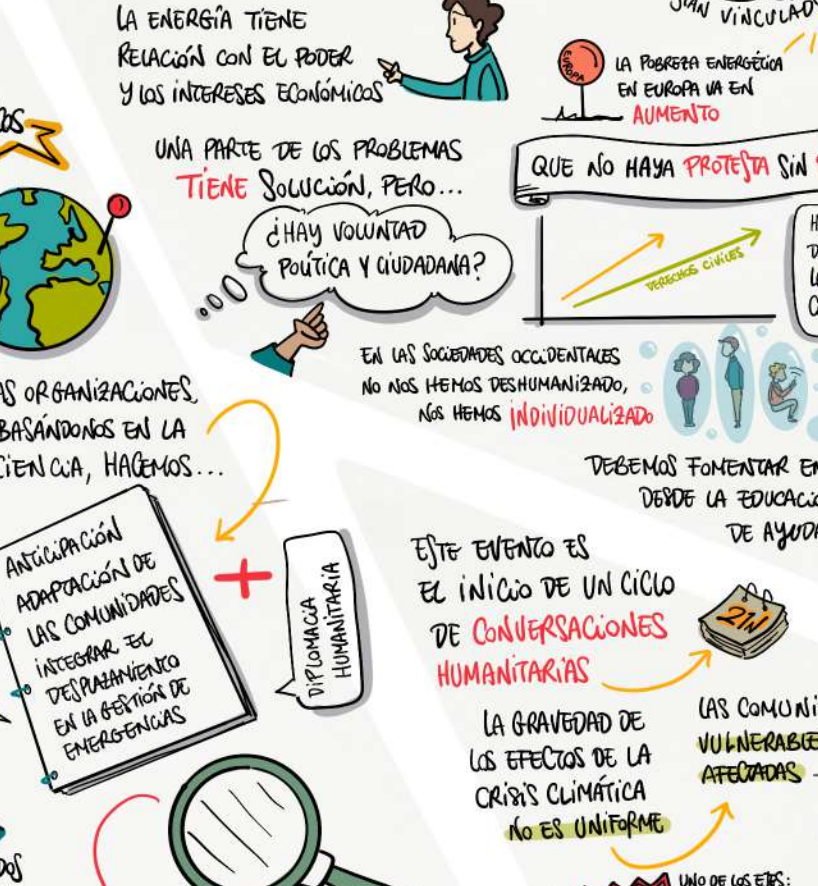 LA ENERGÍA TIENE
RELACIÓN CON EL PODER
Y LOS INTERESES ECONÓMICOS
VINCULADO
EUROPA
LA POBREZA ENERGÉTICA
EN EUROPA VA EN
AUMENTO
UNA PARTE DE LOS PROBLEMAS
TIENE SOLUCIÓN, PERO...
¿HAY VOLUNTAD
POLÍTICA Y CIUDADANA?
QUE NO HAYA PROTESTA SIN
DERECHOS CIVILES
EN LAS SOCIEDADES OCCIDENTALES
NO NOS HEMOS DESHUMANIZADO,
NOS HEMOS INDIVIDUALIZADO
DEBEMOS FOMENTAR
DESDE LA EDUCACIÓ
DE AYUDA
AS ORGANIZACIONES,
BASÁNDONOS EN LA
CIENCIA, HACEMOS...
ANTICIPACIÓN
ADAPTACIÓN DE
LAS COMUNIDADES
INTEGRAR EL
DESPLAZAMIENTO
EN LA GESTIÓN DE
EMERGENCIAS
+
DIPLOMACIA
HUMANITARIA
ESTE EVENTO ES
EL INICIO DE UN CICLO
DE CONVERSACIONES
HUMANITARIAS
21N
LA GRAVEDAD DE
LOS EFECTOS DE LA
CRISIS CLIMÁTICA
NO ES UNIFORME
LAS COMUNI
VULNERABLE
AFECTADAS
UNO DE LOS EJES: